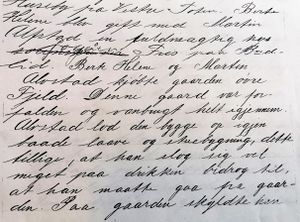 Huseby paa Viske. Fru. Berte
Helene blev gift med Martin
Alstad en fuldmægtig hos
Fres paa Bud-
lid. Berte Helene og Martin
Alvstad kjøbte gaarden øvre
Fjeld. Denne gaard var for-
falden og vanbrugt helt igjennem.
Alvstad lod den bygge op igjen
baade laave og stuebygning, dette
tillige, at han slog sig vel
meget paa drikken bidrog til,
at han maatte gaa fra gaar-
den. Paa gaarden skyldte han